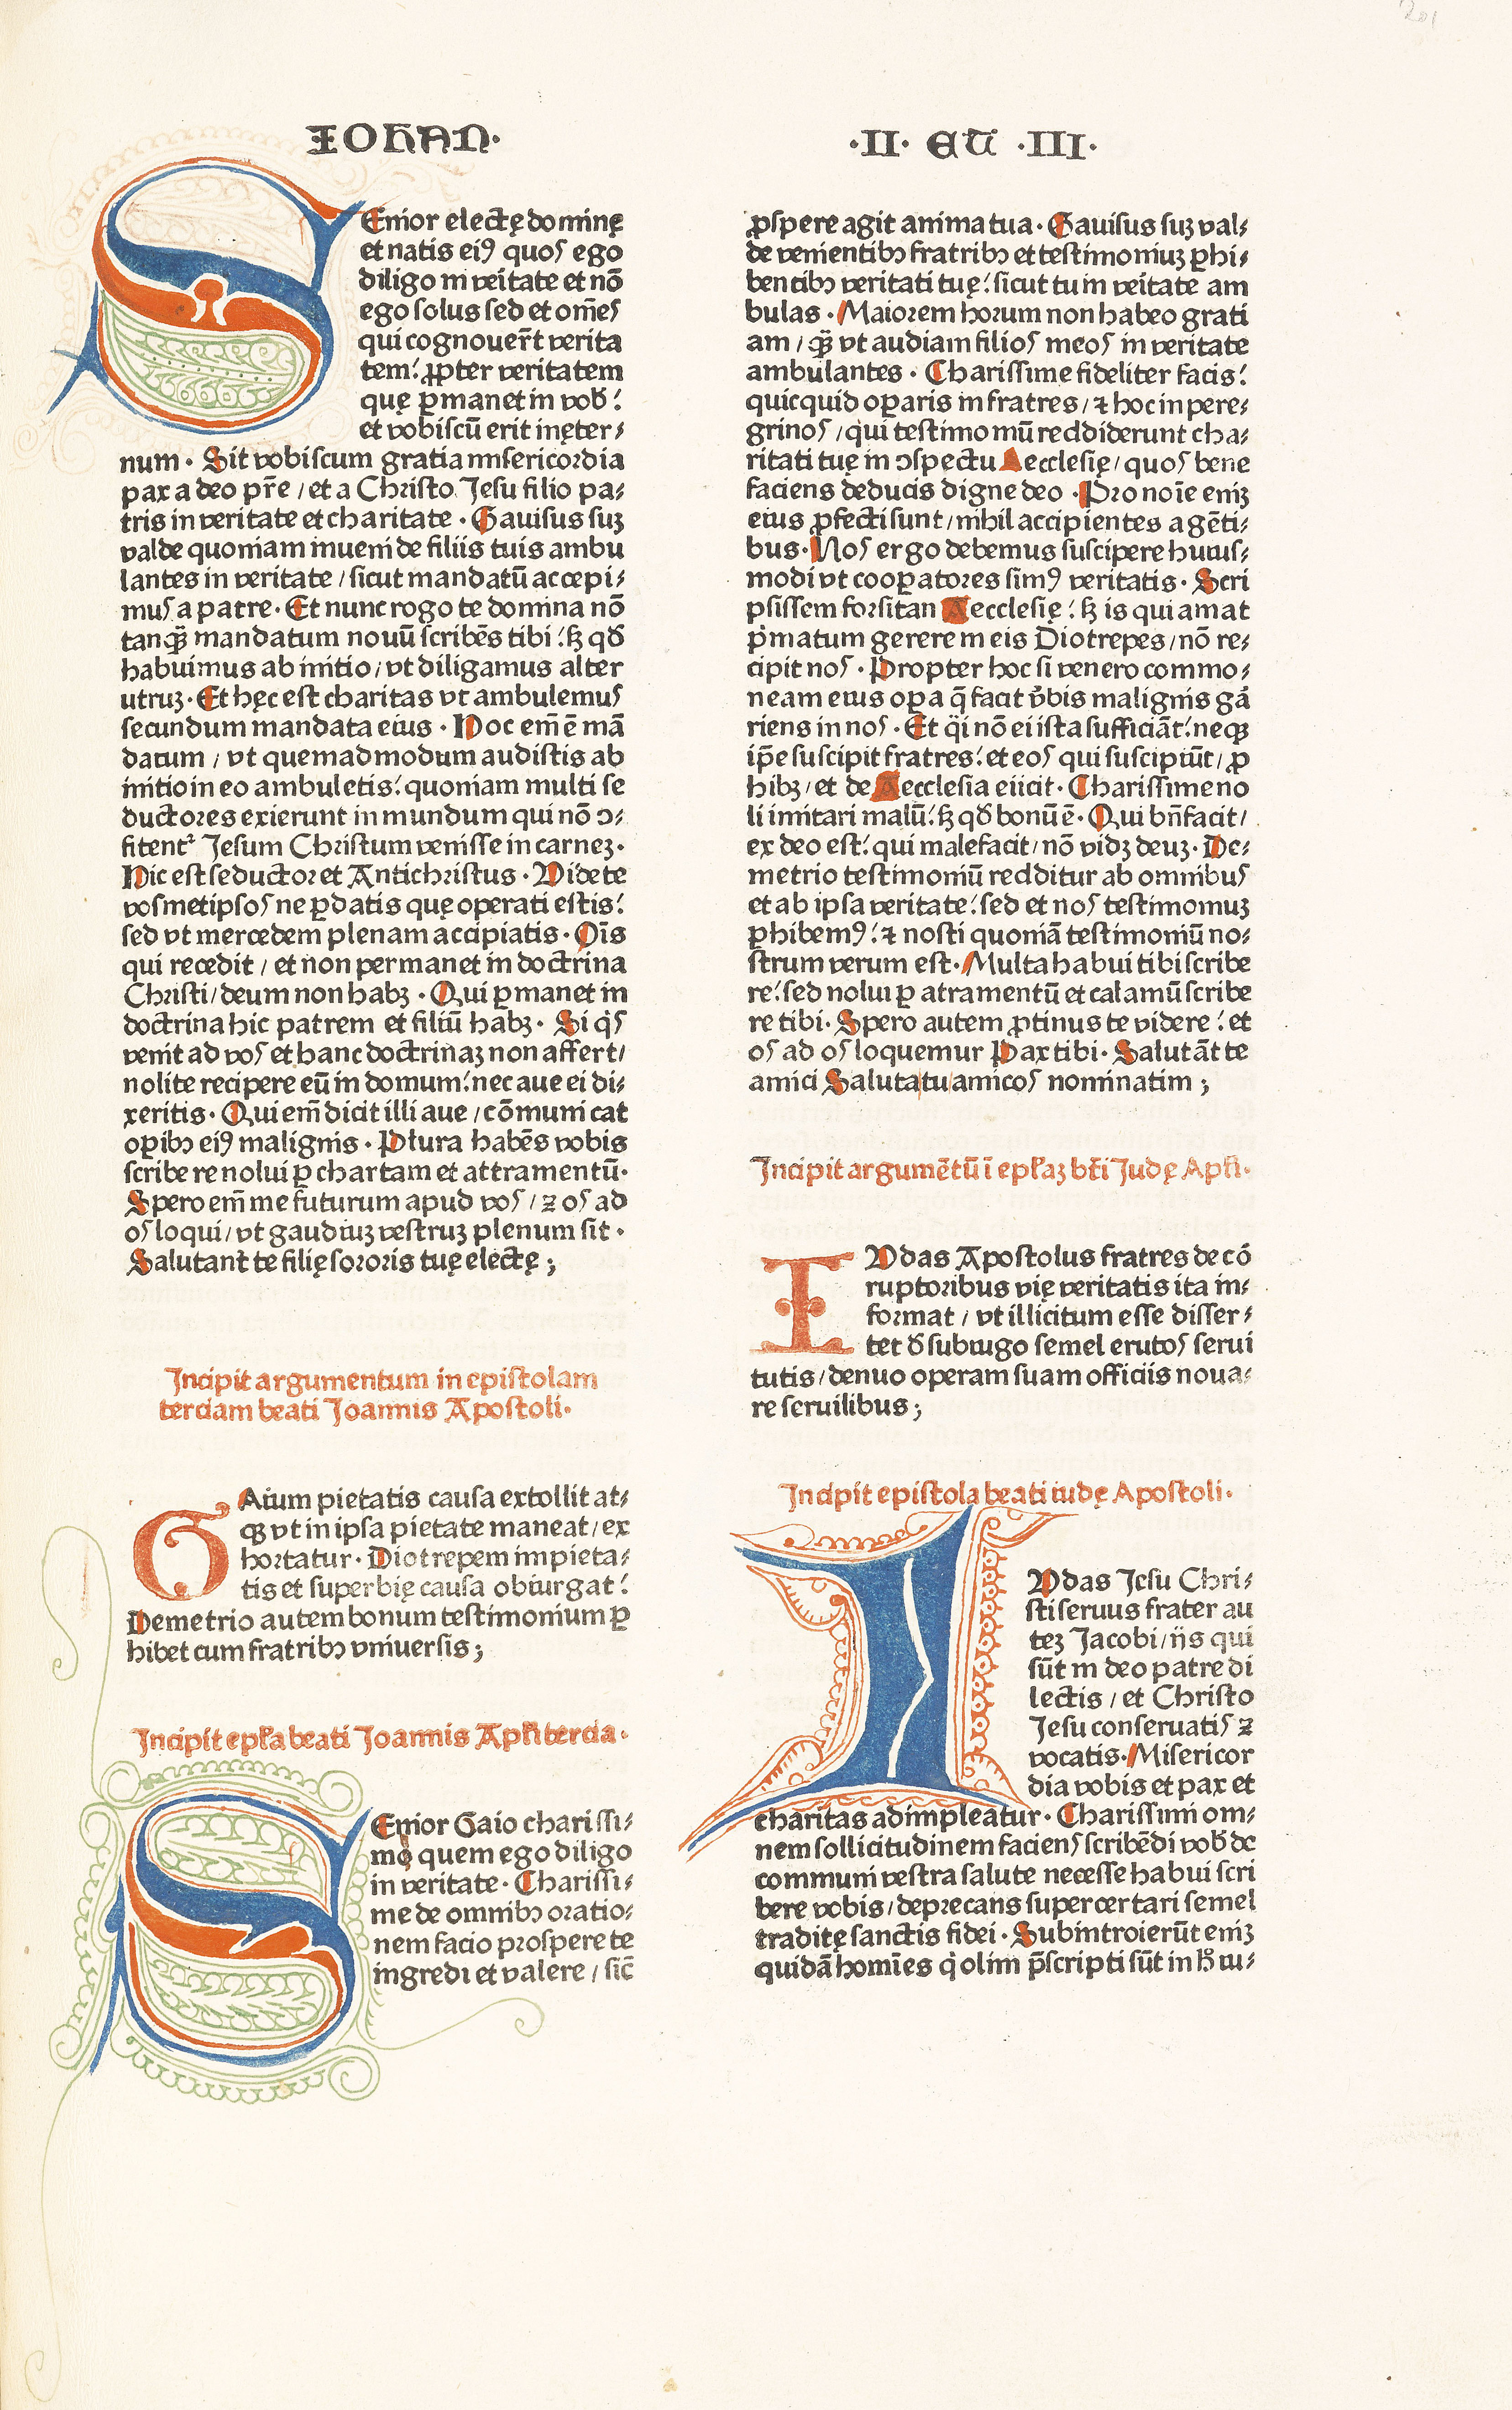 IOHAN·
Senior electę dominę
et natis ei9 quos ego
diligo in ve͂itate et nõ
ego solus sed et om̃es
qui cognouer̃t verita
tem: ꝓpter veritatem
quę ꝑmanet in vob̃:
et vobiscũ erit inęter⸗
num · Sit vobiscum gratia misericordia
pax a deo pr̃e / et a Christo Jesu filio pa⸗
tris in veritate et charitate · Gauisus suꝫ
valde quoniam inueni de filiis tuis ambu
lantes in veritate / sicut mandatũ accepi⸗
mus a patre · Et nunc rogo te domina nõ
tanqꝫ̃ mandatum nouũ scribẽs tibi: sꝫ qd̃
habuimus ab initio / vt diligamus alter
utruꝫ · Et hęc est charitas vt ambulemus
secundum mandata eius · Hoc em̃ ẽ mã
datum / vt quemadmodum audistis ab
initio in eo ambuletis: quoniam multi se
ductores exierunt in mundum qui nõ ɔ⸗
fitent᷑ Jesum Christum venisse in carneꝫ ·
Hic est seductor et Antichristus · Videte
vosmetipsos ne ꝑdatis quę operati estis:
sed vt mercedem plenam accipiatis · Oĩs
qui recedit / et non permanet in doctrina
Christi / deum non habꝫ · Qui ꝑmanet in
doctrina hic patrem et filiũ habꝫ · Si q̇s
venit ad vos et hanc doctrinaꝫ non affert /
nolite recipere eũ in domum: nec aue ei di⸗
xeritis · Qui em̃ dicit illi aue / cõmunicat
oꝑibꝫ ei9 malignis · Plura habẽs vobis
scribere nolui ꝑ chartam et attramentũ ·
Spero em̃ me futurum apud vos / ⁊ os ad
os loqui / vt gaudiuꝫ vestruꝫ plenum sit ·
Salutant te filię sororis tuę electę ;
Incipit argumentum in epistolam
terciam beati Joannis Apostoli·
GAium pietatis causa extollit at⸗
qꝫ vt in ipsa pietate maneat / ex
hortatur · Diotrepem impieta⸗
tis et superbię causa obiurgat:
Demetrio autem bonum testimonium ꝑ
hibet cum fratribꝫ vniuersis ;
Incipit epl̃a beati Joannis Apl̃i tercia ·
SEnior Gaio charissi⸗
mo quem ego diligo
in veritate · Charissi⸗
me de omnibꝫ oratio⸗
nem facio prospere te
ingredi et valere / sic̃
·II· ET ·III·
ꝓspere agit anima tua · Gauisus suꝫ val⸗
de venientibꝫ fratribꝫ et testimoniuꝫ ꝑhi⸗
bentibꝫ veritati tuę: sicut tu in ve͂itate am
bulas · Maiorem horum non habeo grati
am / qꝫ̃ vt audiam filios meos in veritate
ambulantes · Charissime fideliter facis:
quicquid oꝑaris in fratres / ⁊ hoc in pere⸗
grinos / qui testimoniũ reddiderunt cha⸗
ritati tuę in ɔspectu Aecclesię / quos bene
faciens deducis digne deo · Pro noĩe eniꝫ
eius ꝓfecti sunt / nihil accipientes a gẽti⸗
bus · Nos ergo debemus suscipere huius⸗
modi vt cooꝑatores sim9 veritatis · Scri
psissem forsitan Aecclesię: sꝫ is qui amat
pṙmatum gerere in eis Diotrepes / nõ re⸗
cipit nos · Propter hoc si venero commo⸗
neam eius oꝑa q̃ facit v̇bis malignis gȧ
riens in nos · Et q̇i nõ ei ista sufficiãt: neqꝫ
ip̃e suscipit fratres: et eos qui suscipiũt / ꝓ
hibꝫ / et de Aecclesia eiicit · Charissime no
li imitari malũ: sꝫ qd̃ bonũ ẽ · Qui bñfacit /
ex deo est: qui malefacit / nõ vidꝫ deuꝫ · De⸗
metrio testimoniũ redditur ab omnibus
et ab ipsa veritate: sed et nos testimoniuꝫ
ꝑhibem9: ⁊ nosti quoniã testimoniũ no⸗
strum verum est · Multa habui tibi scribe
re: sed nolui ꝑ atramentũ et calamũ scribe
re tibi · Spero autem ꝓtinus te videre: et
os ad os loquemur Pax tibi · Salutãt te
amici Saluta tu amicos nominatim ;
Incipit argumẽtũ ĩ epl̃aꝫ bt̃i Judę Apl̃i·
IVdas Apostolus fratres de cõ
ruptoribus vię veritatis ita in⸗
format / vt illicitum esse disser⸗
tet d̃ sub iugo semel erutos serui
tutis / denuo operam suam officiis noua⸗
re seruilibus ;
Incipit epistola beati iudę Apostoli·
IVdas Jesu Chri⸗
sti seruus frater au
teꝫ Jacobi / iis qui
sũt in deo patre di
lectis / et Christo
Jesu conseruatis ⁊
vocatis · Misericor
dia vobis et pax et
charitas adimpleatur · Charissimi om⸗
nem sollicitudinem faciens scribẽdi vob̃ de
communi vestra salute necesse habui scri
bere vobis / deprecans supercertari semel
traditę sanctis fidei · Subintroierũt eniꝫ
quidã homĩes q̇ olim p̃scripti sũt in h̃ iu⸗